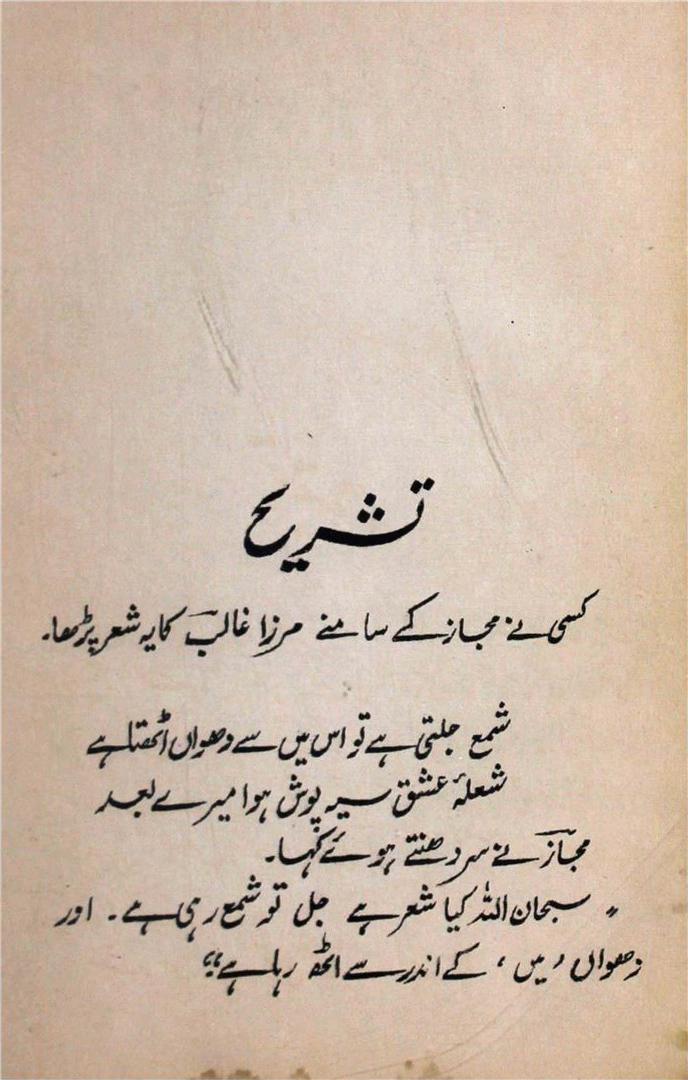 تشریح
کسی نے مجاز کے سامنے مرزا غالب کا یہ شعر پڑھا۔
شمع جلتی ہے تو اس میں سے دھواں اٹھتا ہے
شعلۂ عشق سیہ پوش ہوا میرے بعد
مجاز نے سر دھنتے ہوئے کہا۔
"سبحان اللہ کیا شعر ہے جل تو شمع رہی ہے۔ اور
دھواں 'میں' کے اندر سے اٹھ رہا ہے"